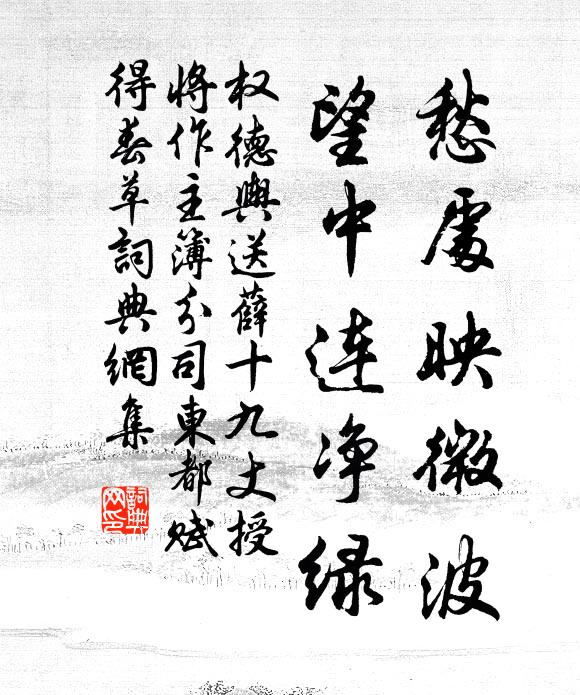 愁處映微波
望中連净绿
权德輿送薛十九丈授
將作主簿分司東都赋
得春草詞典網集
詞典
网印